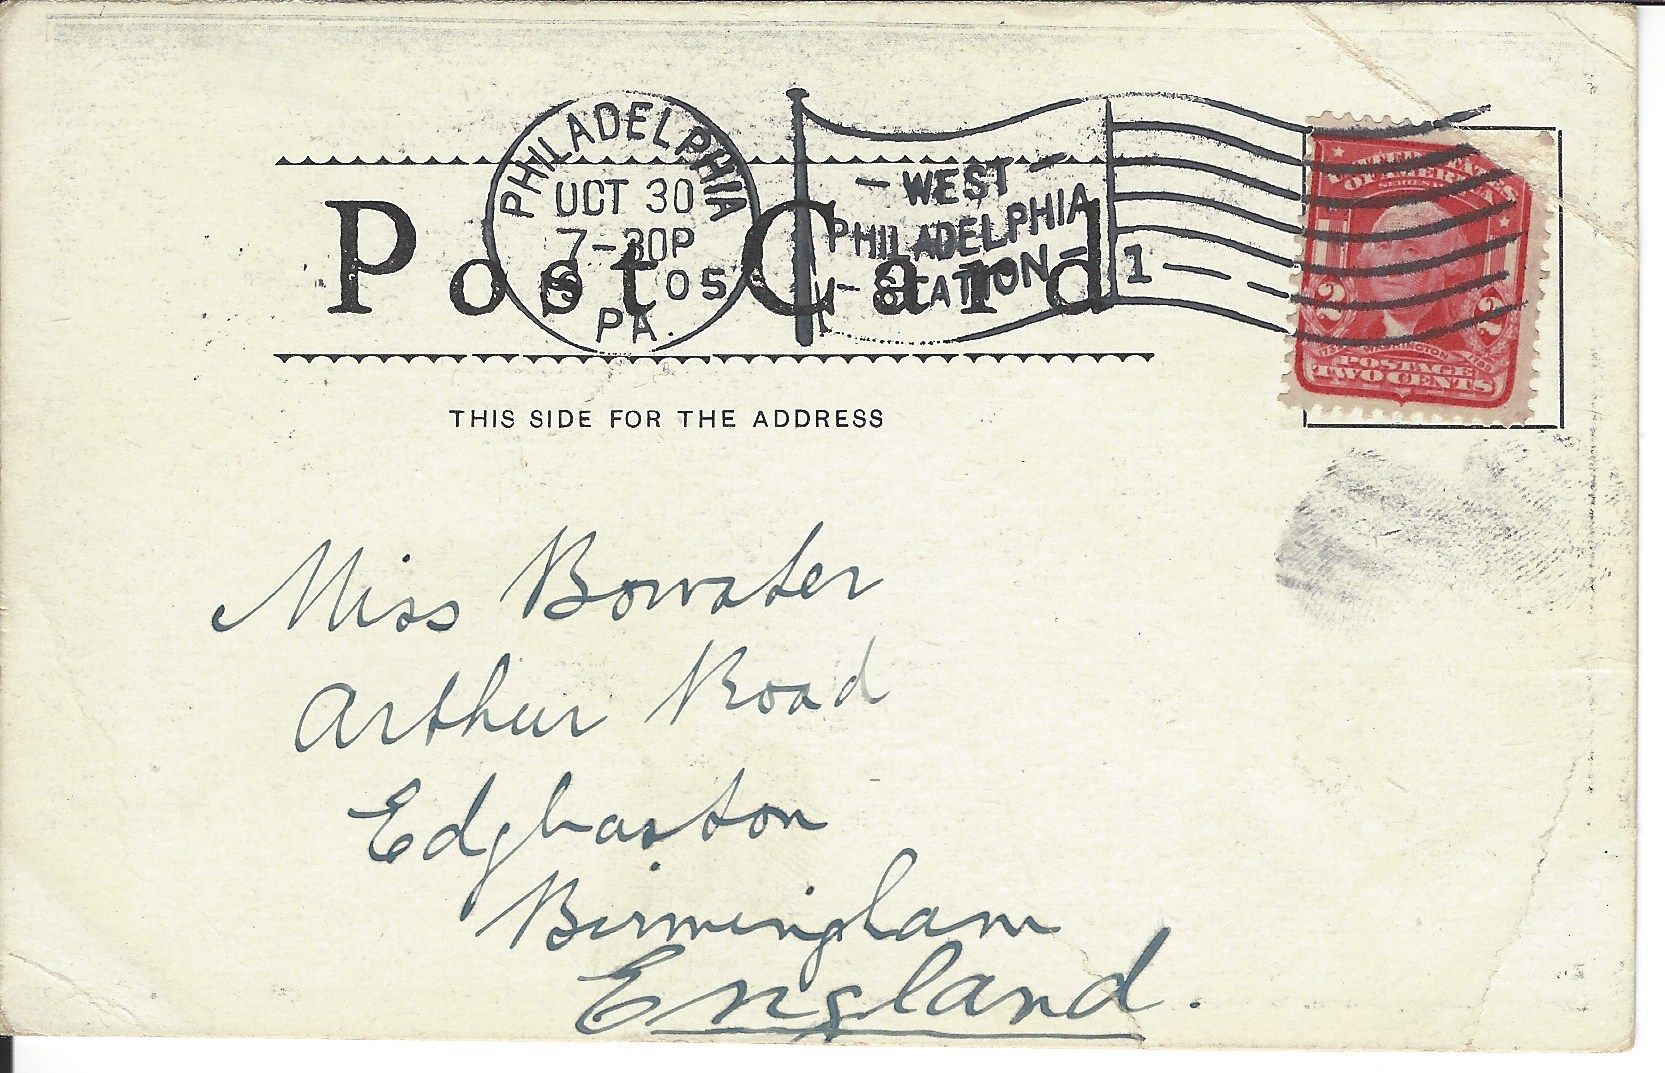 PHILADELPHIA
OCT 30
7-30P
19 05
PA.
- WEST -
PHILADELPHIA
- STATION -
1
Post Card
THIS SIDE FOR THE ADDRESS
OF AMERICA
2 2
WASHINGTON
POSTAGE
TWO CENTS
Miss Bowater
Arthur Road
Edgbaston
Birmingham
England.